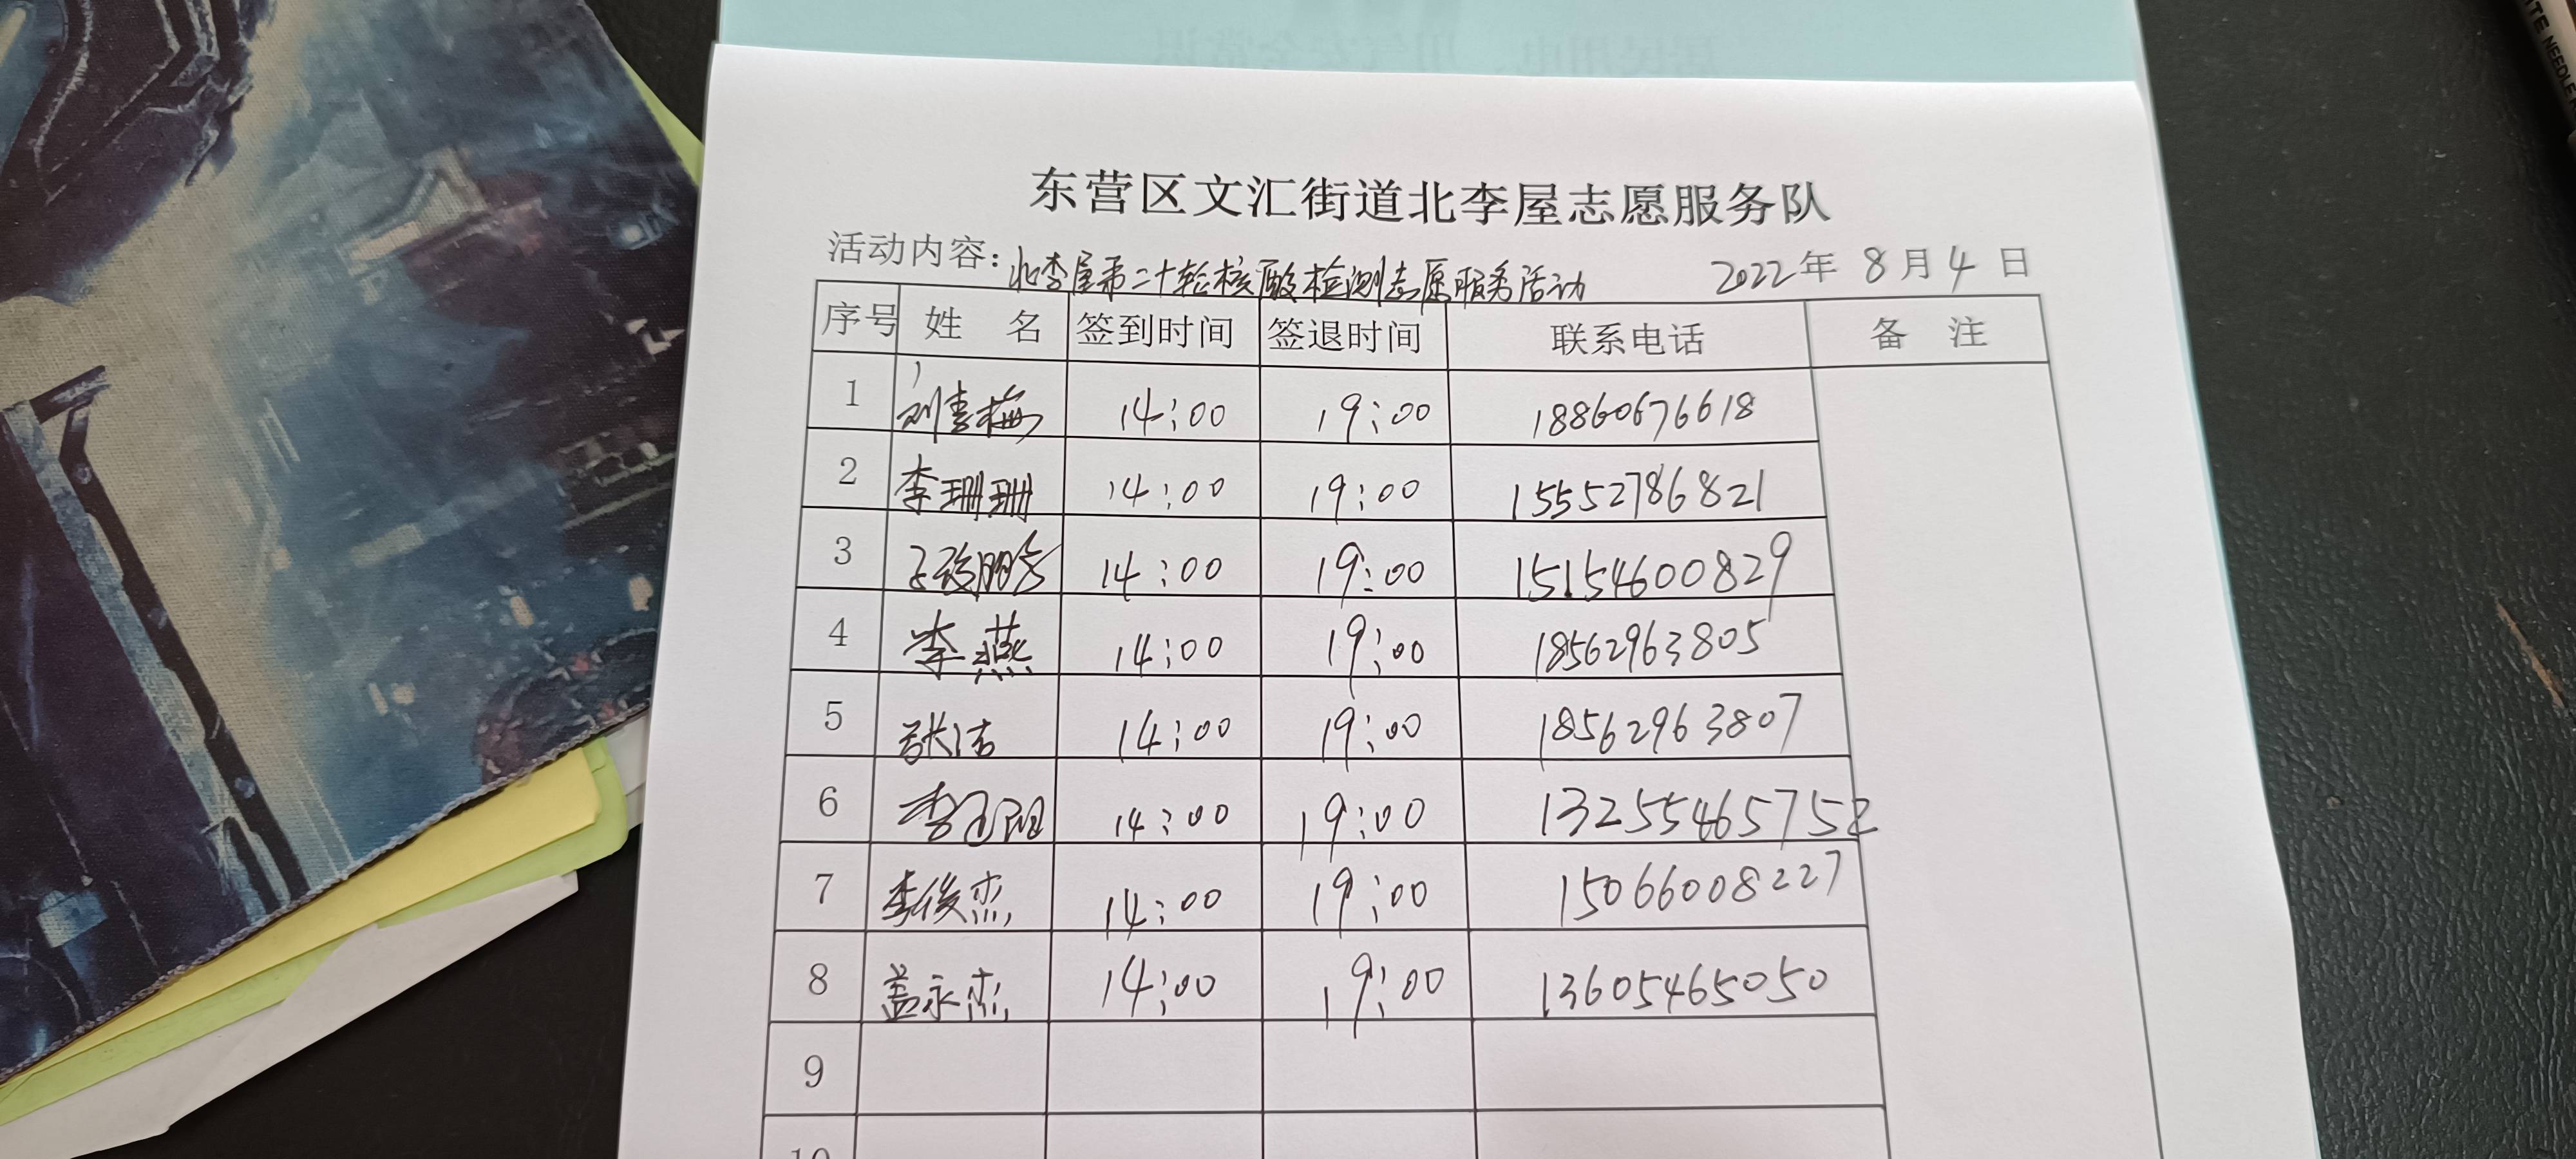 居民用电、用气安全常识
ITE NEEDLE
东营区文汇街道北李屋志愿服务队
活动内容：北李屋第二十轮核酸检测志愿服务活动 2022年 8月4日
序号 姓 名 签到时间 签退时间 联系电话 备 注
1 刘青梅 14:00 19:00 18860676618
2 李珊珊 14:00 19:00 15552786821
3 14:00 19:00 15154600829
4 李燕 14:00 19:00 18562963805
5 张洁 14:00 19:00 18562963807
6 李 阳 14:00 19:00 13255465752
7 李俊杰 14:00 19:00 15066008227
8 盖永杰 14:00 19:00 13605465050
9
10